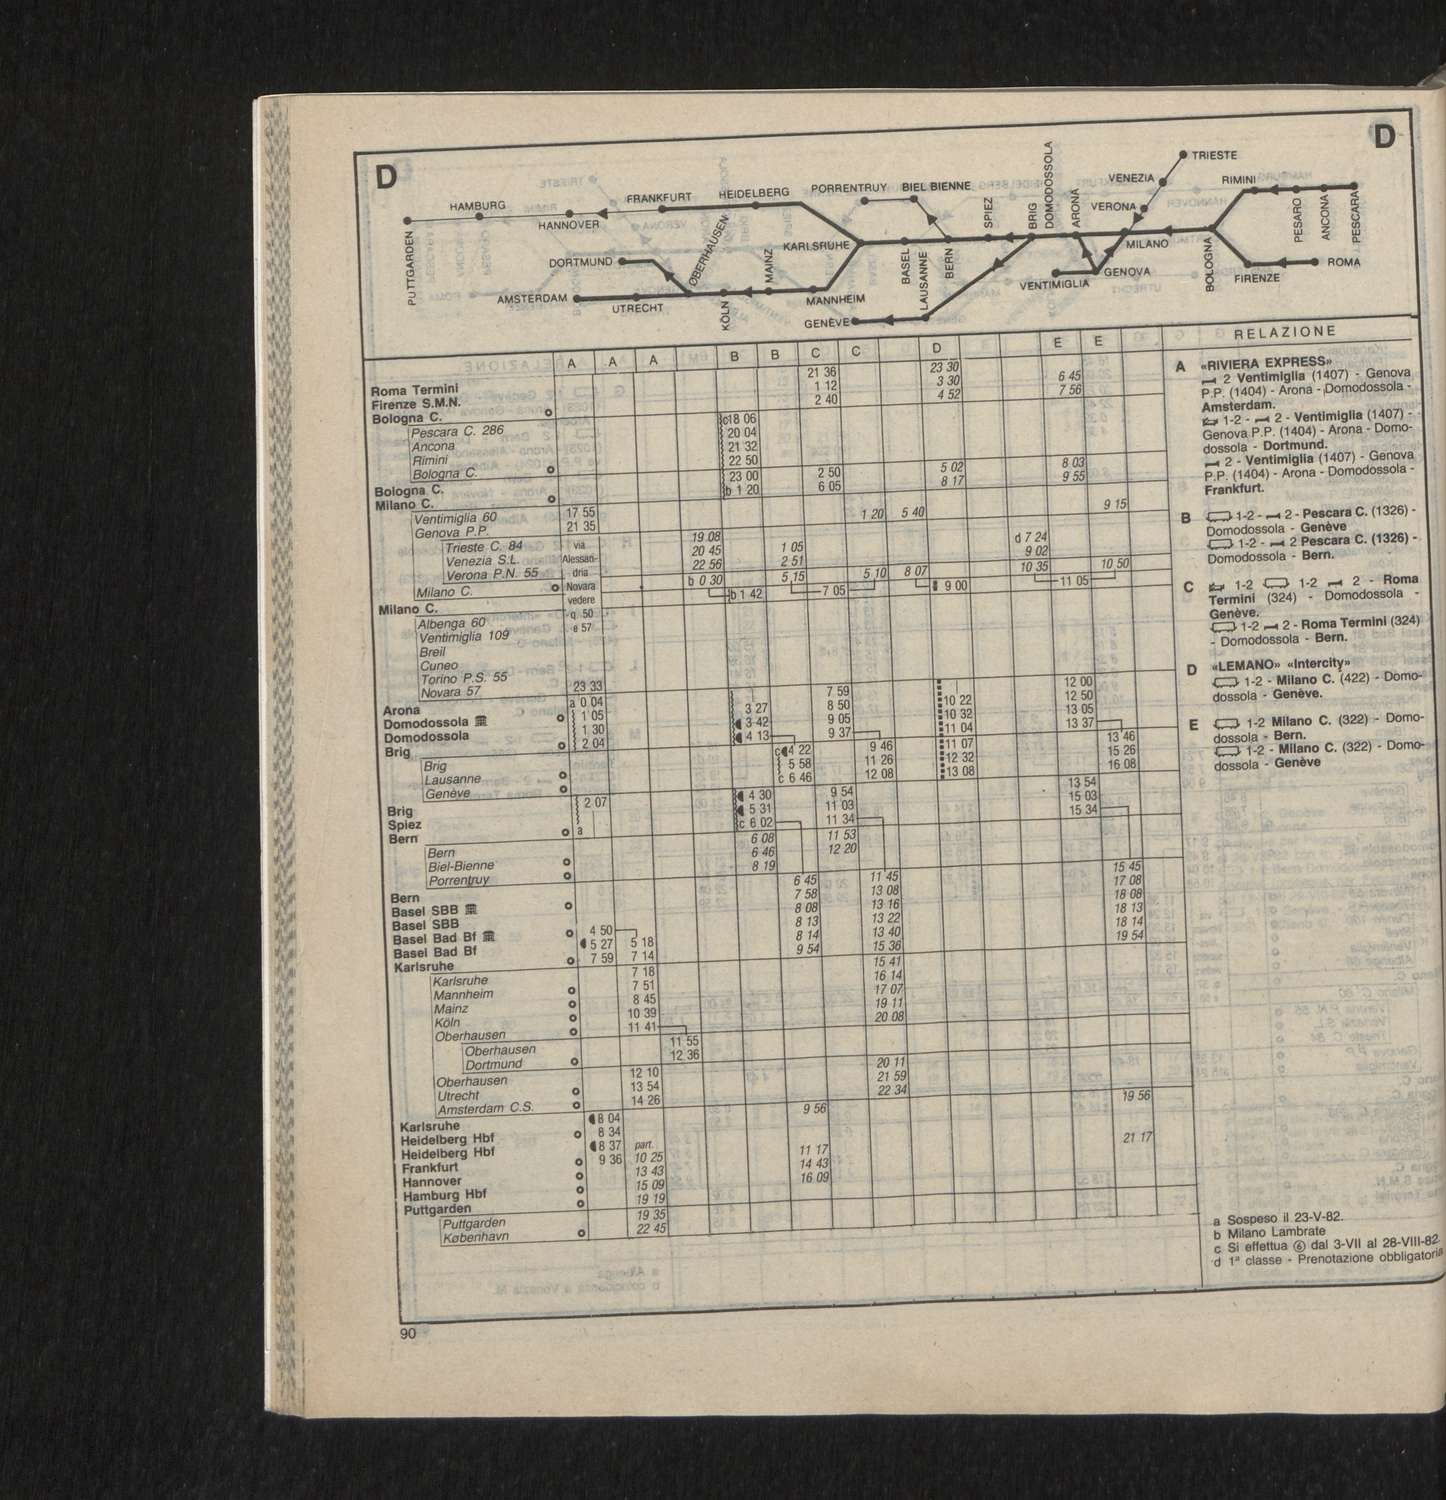 D
D
TRIESTE
VENEZIA
RIMINI
VERONA
HAMBURG
HANNOVER
FRANKFURT
HEIDELBERG
PORRENTRUY
BIEL BIENNE
SPIEZ
BRIG
DOMODOSSOLA
ARONA
PUTTGARDEN
DORTMUND
OBERHAUSEN
MAINZ
KARLSRUHE
BASEL
LAUSANNE
BERN
MILANO
BOLOGNA
PESARO
ANCONA
PESCARA
AMSTERDAM
UTRECHT
KÖLN
MANNHEIM
GENÈVE
VENTIMIGLIA
GENOVA
FIRENZE
ROMA
A A A B B C C D E E
RELAZIONE
Roma Termini 21 36 23 30
Firenze S.M.N. 1 12 3 30 6 45
Bologna C. 2 40 4 52 7 56
Pescara C. 286 c18 06
Ancona 20 04
Rimini 21 32
Bologna C. 22 50
Bologna C. 23 00 2 50 5 02 8 03
Milano C. b 1 20 6 05 8 17 9 55
Ventimiglia 60 17 55 1 20 5 40 9 15
Genova P.P. 21 35
Trieste C. 84 via 19 08 d 7 24
Venezia S.L. Alessan- 20 45 1 05 9 02
Verona P.N. 55 dria 22 56 2 51 10 35 10 50
Milano C. Novara b 0 30 5 15 5 10 8 07
Milano C. vedere b 1 42 7 05 9 00 11 05
Albenga 60 q. 50
Ventimiglia 109 e 57
Breil
Cuneo
Torino P.S. 55
Novara 57
Arona 23 33 7 59 12 00
Domodossola a 0 04 3 27 8 50 10 22 12 50
Domodossola 1 05 3 42 9 05 10 32 13 05
Brig 1 30 4 13 9 37 11 04 13 37
2 04
Brig c 4 22 9 46 11 07 13 46
Lausanne 5 58 11 26 12 32 15 26
Genève c 6 46 12 08 13 08 16 08
Brig 2 07 4 30 9 54 13 54
Spiez 5 31 11 03 15 03
Bern a c 6 02 11 34 15 34
Bern 6 08 11 53
Biel-Bienne 6 46 12 20
Porrentruy 8 19
Bern 6 45 11 45 15 45
Basel SBB 7 58 13 08 17 08
Basel SBB 8 08 13 16 18 08
Basel Bad Bf 4 50 8 13 13 22 18 13
Basel Bad Bf 5 27 5 18 8 14 13 40 18 14
Karlsruhe 7 59 7 14 9 54 15 36 19 54
Karlsruhe 7 18 15 41
Mannheim 7 51 16 14
Mainz 8 45 17 07
Köln 10 39 19 11
Oberhausen 11 41 20 08
Oberhausen 11 55
Dortmund 12 36
Oberhausen 12 10 20 11
Utrecht 13 54 21 59
Amsterdam C.S. 14 26 22 34
Karlsruhe 8 04 9 56 19 56
Heidelberg Hbf 8 34
Heidelberg Hbf 8 37 part.
Frankfurt 9 36 10 25 11 17 21 17
Hannover 13 43 14 43
Hamburg Hbf 15 09 16 09
Puttgarden 19 19
Puttgarden 19 35
København 22 45
A «RIVIERA EXPRESS»
2 Ventimiglia (1407) - Genova
P.P. (1404) - Arona - Domodossola -
Amsterdam.
1-2 - 2 - Ventimiglia (1407) -
Genova P.P. (1404) - Arona - Domo-
dossola - Dortmund.
2 - Ventimiglia (1407) - Genova
P.P. (1404) - Arona - Domodossola -
Frankfurt.
B 1-2 - 2 - Pescara C. (1326) -
Domodossola - Genève
1-2 - 2 Pescara C. (1326) -
Domodossola - Bern.
C 1-2 1-2 2 - Roma
Termini (324) - Domodossola -
Genève.
1-2 2 - Roma Termini (324)
- Domodossola - Bern.
D «LEMANO» «Intercity»
1-2 - Milano C. (422) - Domo-
dossola - Genève.
E 1-2 Milano C. (322) - Domo-
dossola - Bern.
1-2 - Milano C. (322) - Domo-
dossola - Genève
a Sospeso il 23-V-82.
b Milano Lambrate
c Si effettua ⑥ dal 3-VII al 28-VIII-82.
d 1ª classe - Prenotazione obbligatoria
90